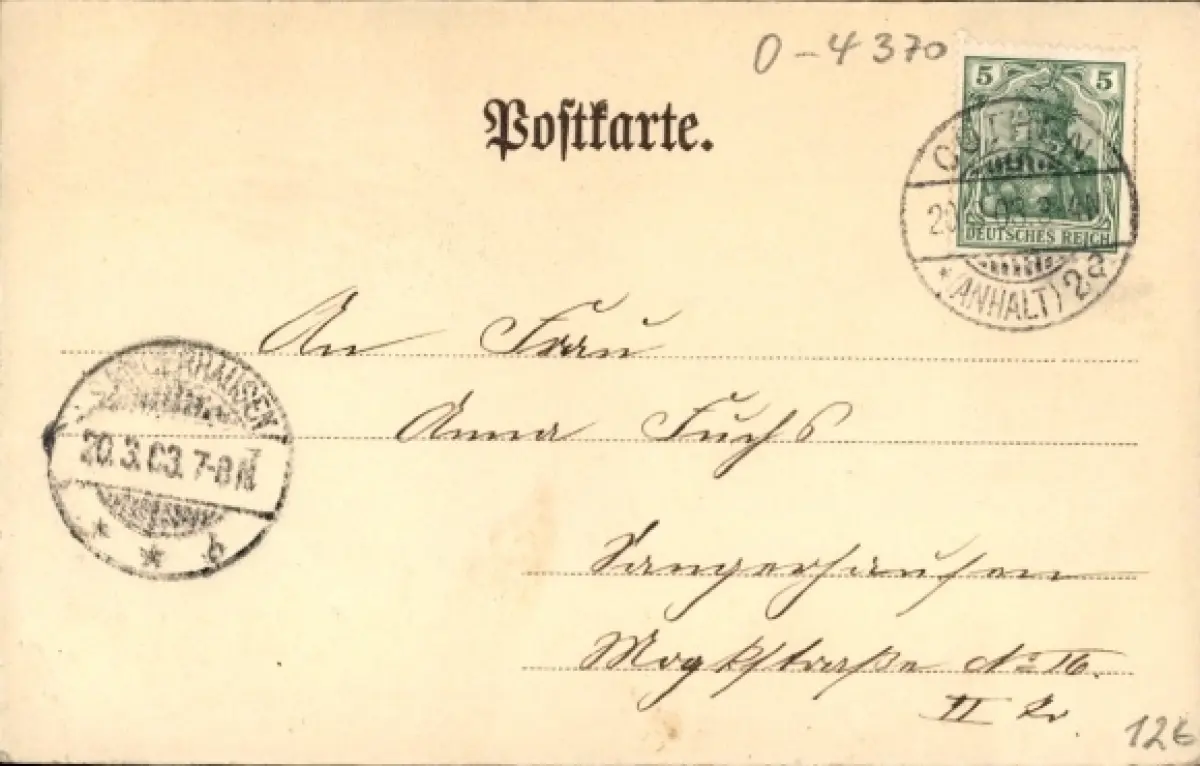 O-4370
Postkarte.
5 5
DEUTSCHES REICH
CÖTHEN
20.3.03.3-4N
*(ANHALT) 2a
An Frau
SANGERHAUSEN
20.3.03.7-8N
* * b
Anna Fuchs
Sangerhausen
Mogkstraße No 16.
II
126